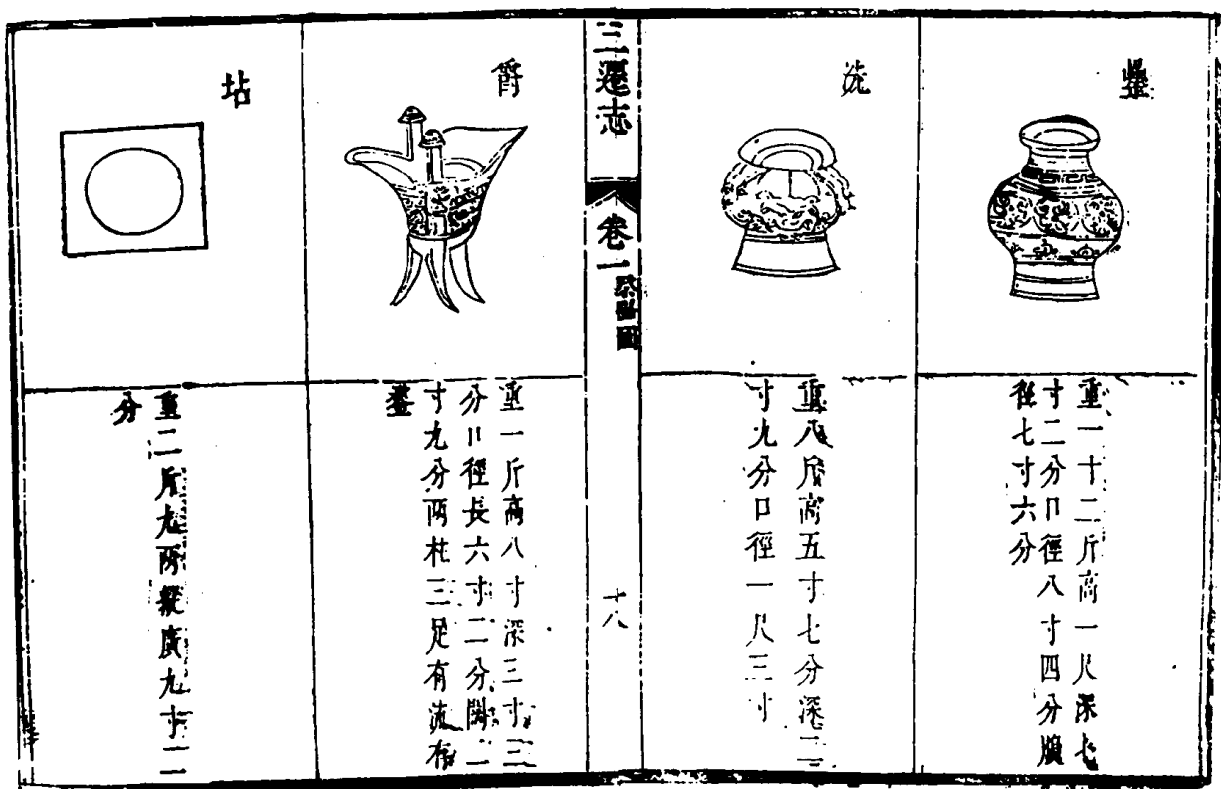 罍
重一十二斤高一尺深七
寸二分口徑八寸四分腹
徑七寸六分
洗
重八斤高五寸七分深二
寸九分口徑一尺三寸
三遷志
卷一
祭器圖
十八
爵
重一斤高八寸深三寸三
分口徑長六寸二分闊二
寸九分两柱三足有流有
鋬
坫
重二斤九两縱廣九寸二
分